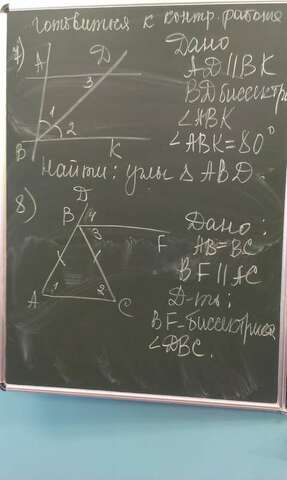 готовиться к контр. работе
7)
A D
3
1
2
B K
Дано
AD || BK
BD биссектр
∠ABK
∠ABK=80°
Найти: углы Δ ABD.
8)
D
B 4
3
F
A 1 2 C
Дано:
AB=BC
BF || AC
Д-ть:
BF-биссектриса
∠DBC.